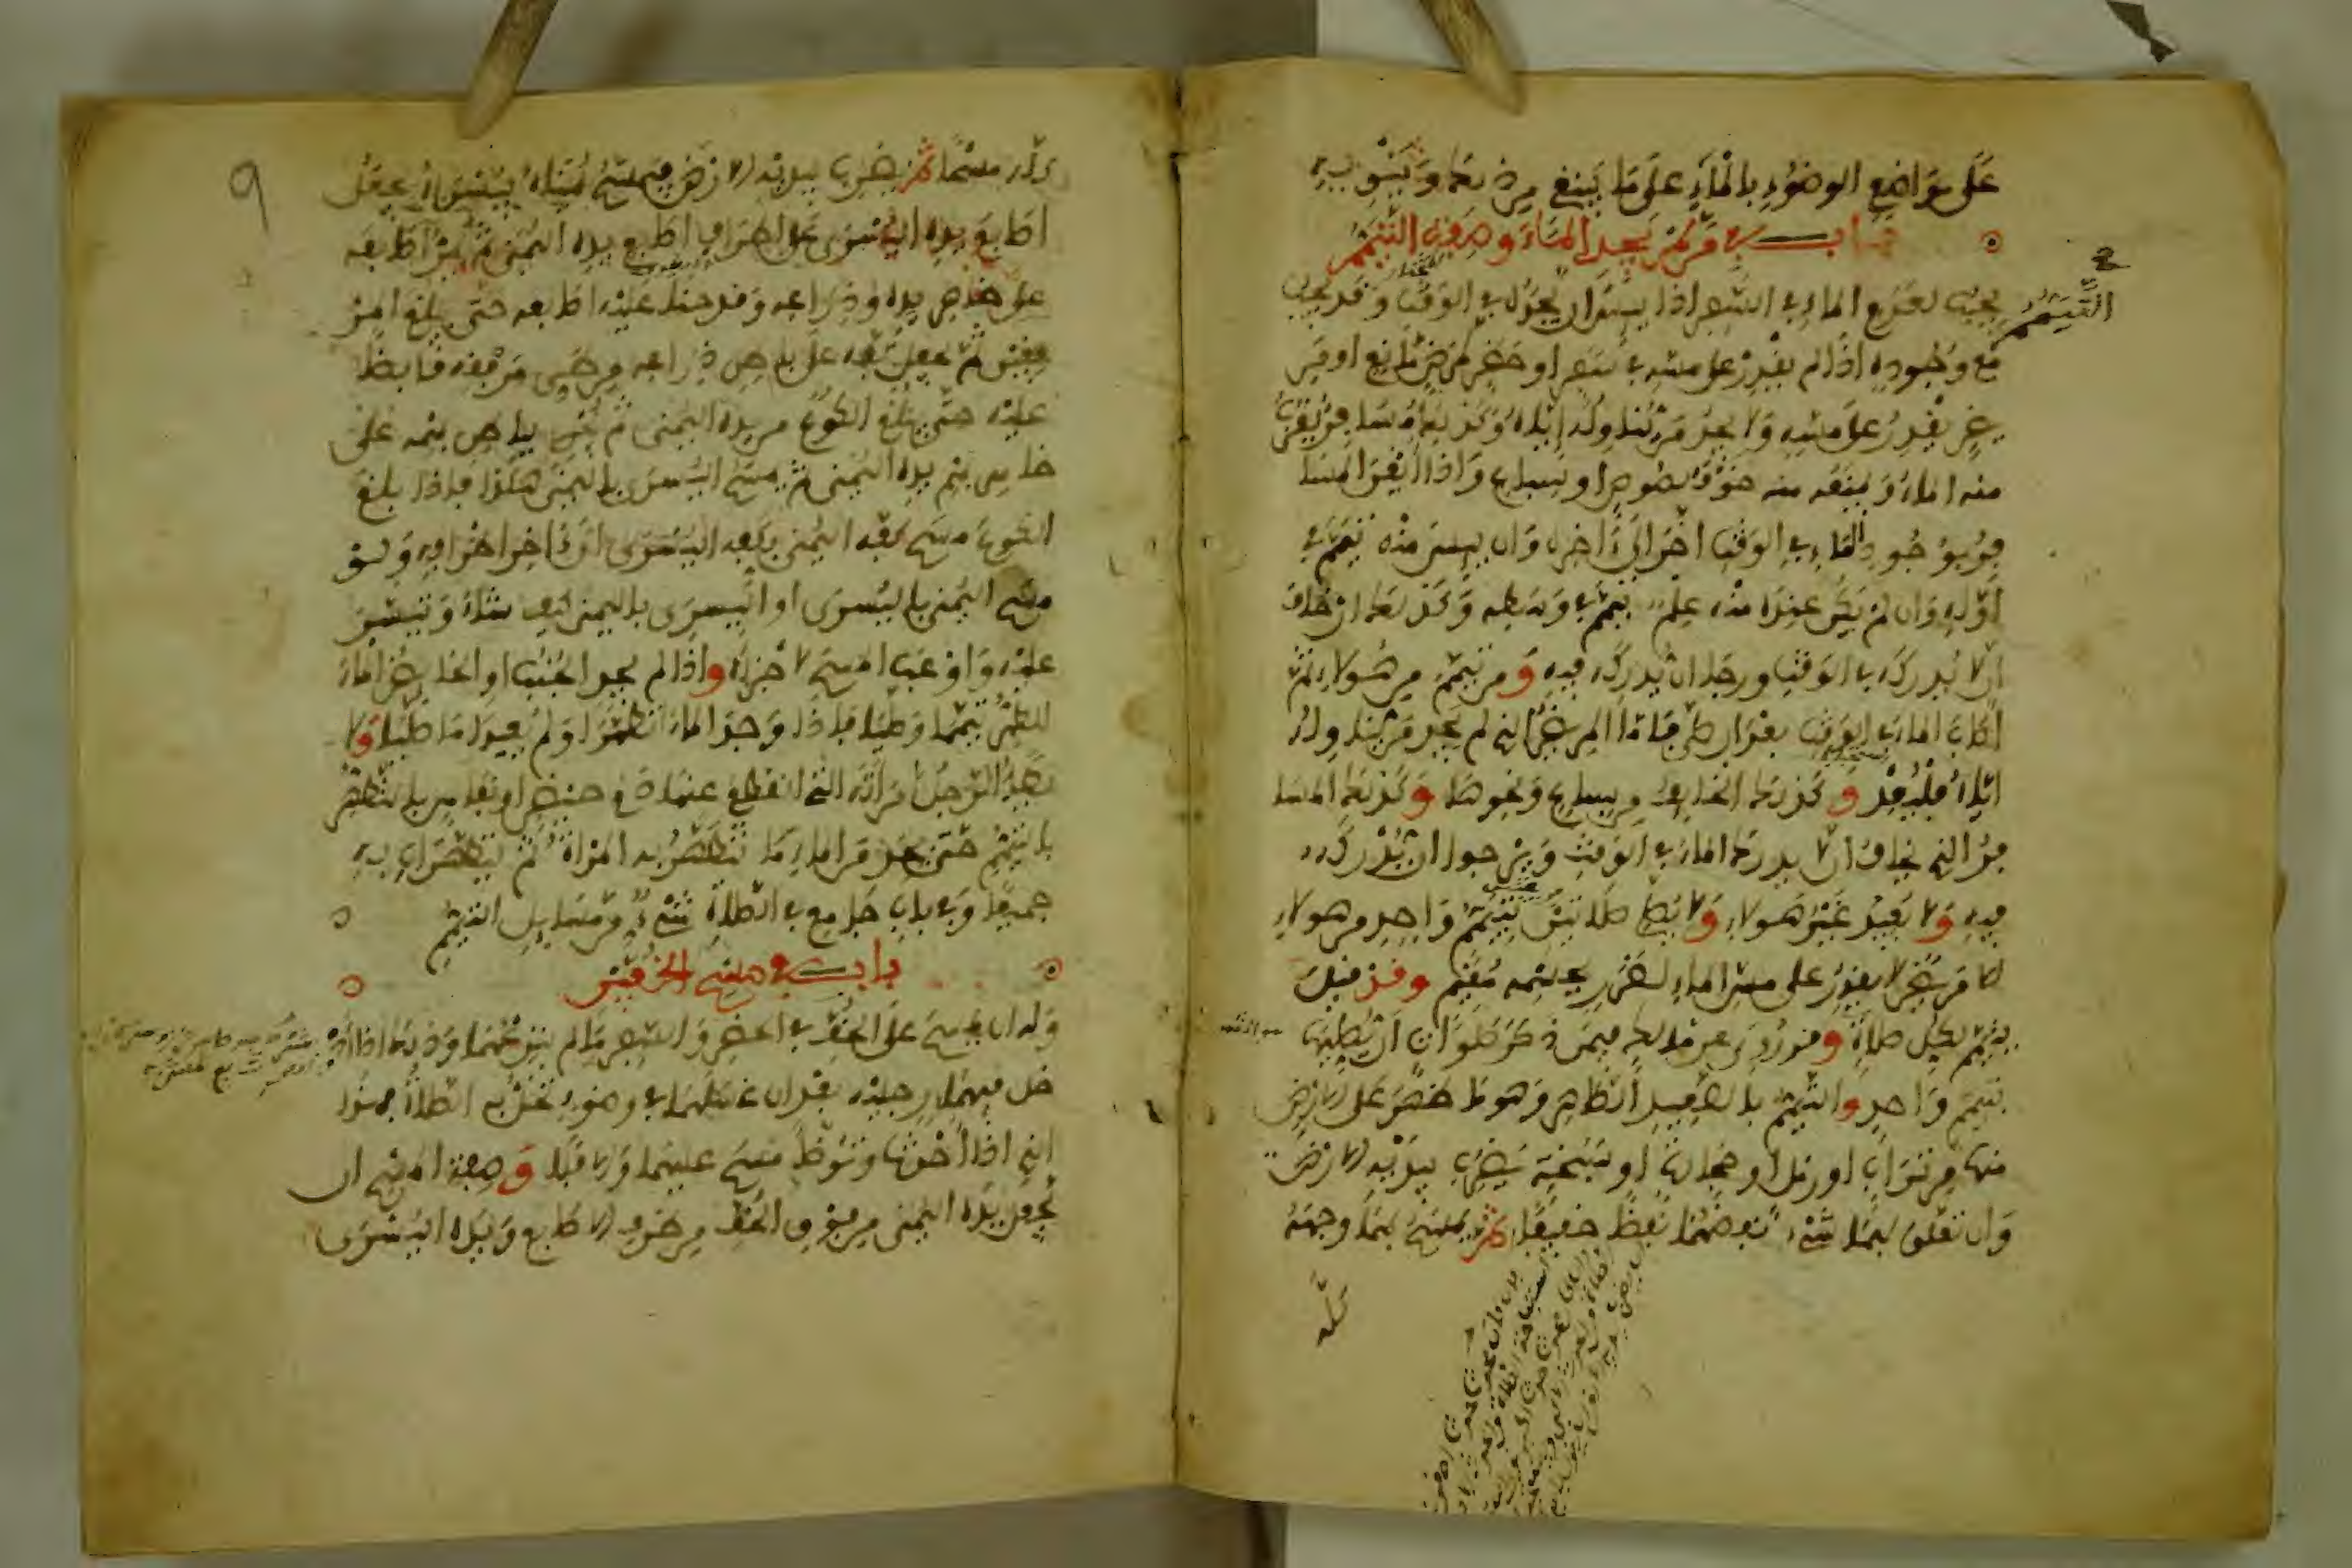 على مواضع الوضوء بالماء على ما ينبغي من ذلك وينويه
باب في من لم يجد الماء وصفة التيمم
التيمم
يجب لعدم الماء في السفر إذا يئس أن يجده في الوقت وقد يجب
مع وجوده إذا لم يقدر على مسه في سفر أو حضر لمرض مانع أو مر
يض يقدر على مسه ولا يجد من يناوله إياه وكذلك مسافر يقرب
منه الماء ويمنعه منه خوف لصوص أو سباع وإذا أيقن المسا
فر بوجود الماء في الوقت أخر إلى آخره وإن يئس منه تيمم في
أوله وإن لم يكن عنده منه علم تيمم في وسطه وكذلك إن خاف
أن لا يدركه في الوقت ورجا أن يدركه فيه ومن تيمم من هؤلاء ثم
أصاب الماء في الوقت بعد أن صلى فأما المريض الذي لم يجد من يناوله
إياه فليعد وكذلك الخائف من سباع ونحوها وكذلك المسا
فر الذي يخاف أن لا يدرك الماء في الوقت ويرجو أن يدركه
فيه ولا يعيد غير هؤلاء ولا يصلي صلاتين بتيمم واحد من هؤلاء
إلا مريض لا يقدر على مس الماء لضرر بجسمه مقيم وقد قيل
يتيمم لكل صلاة وقد روي عن مالك فيمن ذكر صلوات أن يصليها
بتيمم واحد والتيمم بالصعيد الطاهر وهو ما صعد على الأرض
منها من تراب أو رمل أو حجارة أو سبخة يضرب بيديه الأرض
وإن تعلق بهما شيء نفضهما نفضا خفيفا ثم يمسح بهما وجهه
كله
كله مسحا ثم يضرب بيديه الأرض فيمسح يمناه بيسراه يجعل
أصابع يده اليسرى على أطراف أصابع يده اليمنى ثم يمر أصابعه
على ظاهر يده وذراعه وقد حنى عليه أصابعه حتى يبلغ المر
فقين ثم يجعل كفه على باطن ذراعه من طي مرفقه قابضا
عليه حتى يبلغ الكوع من يده اليمنى ثم يجري باطن بهمه على
ظاهر بهم يده اليمنى ثم يمسح اليسرى باليمنى هكذا فإذا بلغ
الكوع مسح كفه اليمنى بكفه اليسرى إلى آخر أطرافه ولو
مسح اليمنى باليسرى أو اليسرى باليمنى كيف شاء وتيسر
عليه وأوعب المسح لأجزأه وإذا لم يجد الجنب أو الحائض الماء
للطهر تيمما وصليا فإذا وجدا الماء تطهرا ولم يعيدا ما صليا ولا
يطأ الرجل امرأته التي انقطع عنها دم حيض أو نفاس بالتطهر
بالتيمم حتى يجد من الماء ما تتطهر به المرأة ثم يتطهران به
جميعا وفي باب جامع في الصلاة شيء من مسائل التيمم
باب في مسح الخفين
وله أن يمسح على الخف في الحضر والسفر ما لم ينزعهما وذلك إذا أد
خل فيهما رجليه بعد أن غسلهما في وضوء تحل به الصلاة فهذا
الذي إذا أحدث وتوضأ مسح عليهما وإلا فلا وصفة المسح أن
يجعل يده اليمنى من فوق الخف من طرف الأصابع ويده اليسرى